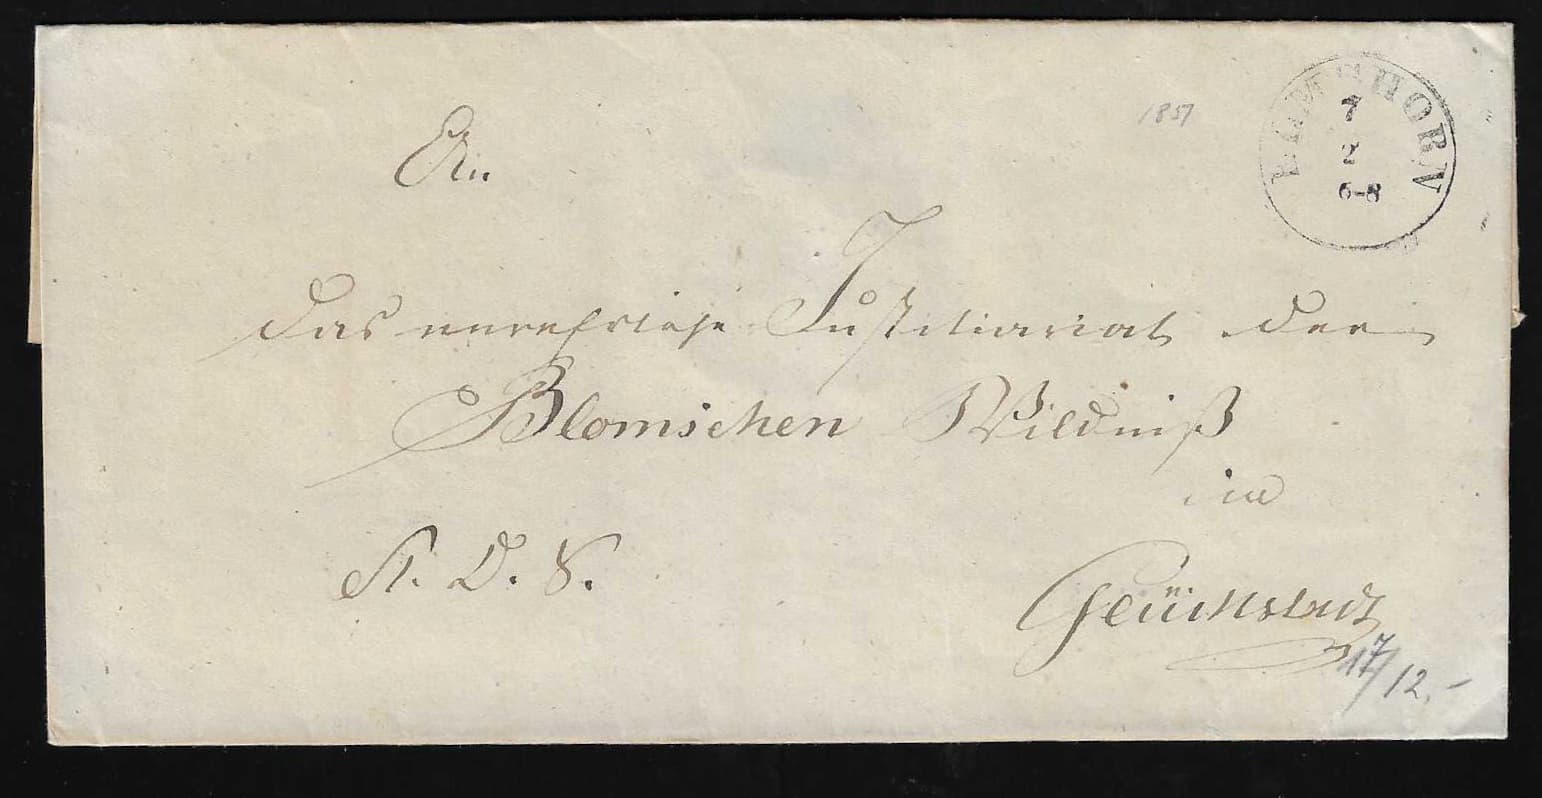 1857
ELMSHORN
7
2
6-8
An
das verehrliche Justitiariat der
Blomschen Wildniß
in
K. D. S.
Glückstadt
17/12.-